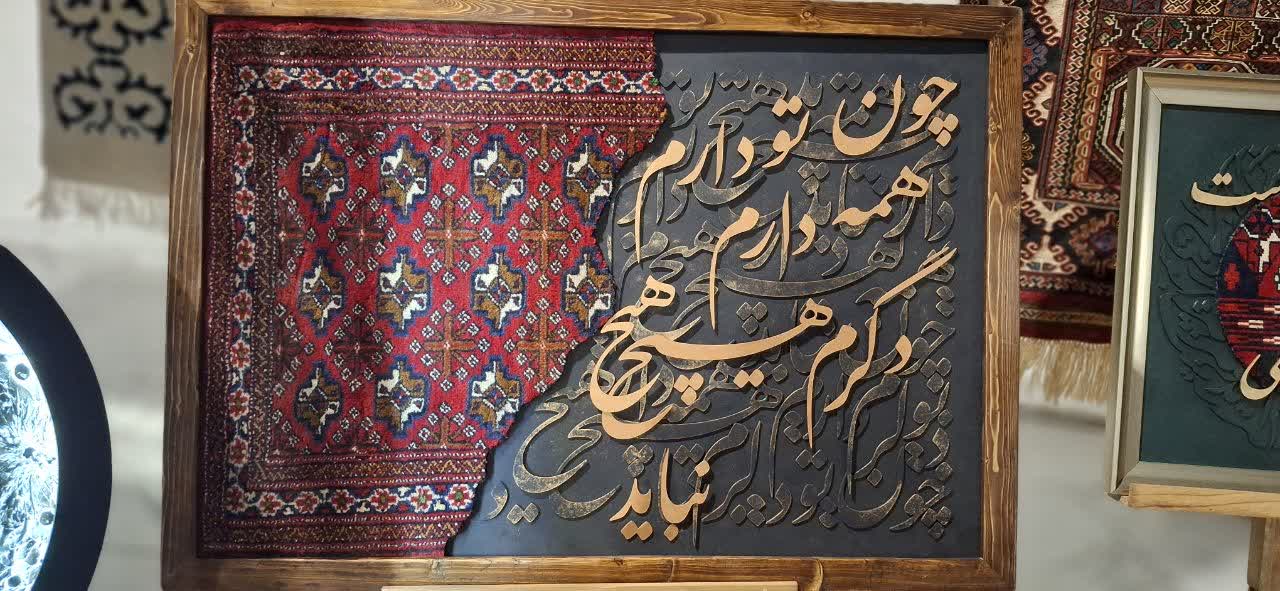 چون تو دارم
همه دارم
دگرم
هیچ هیچ
نباید
ست
ی